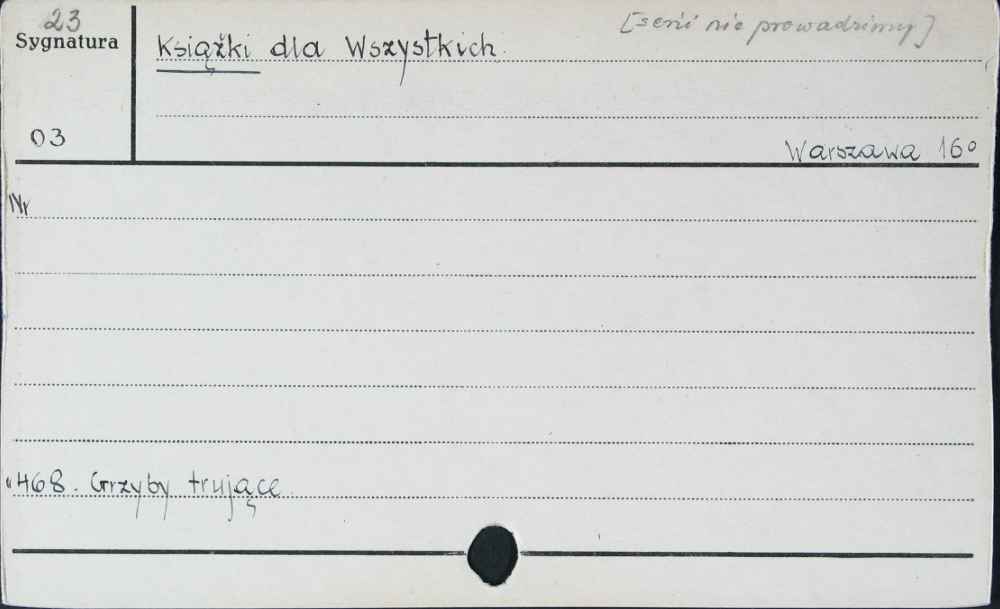 23
[serii nie prowadzimy]
Sygnatura
Książki dla Wszystkich
03
Warszawa 16°
Nr
"468. Grzyby trujące